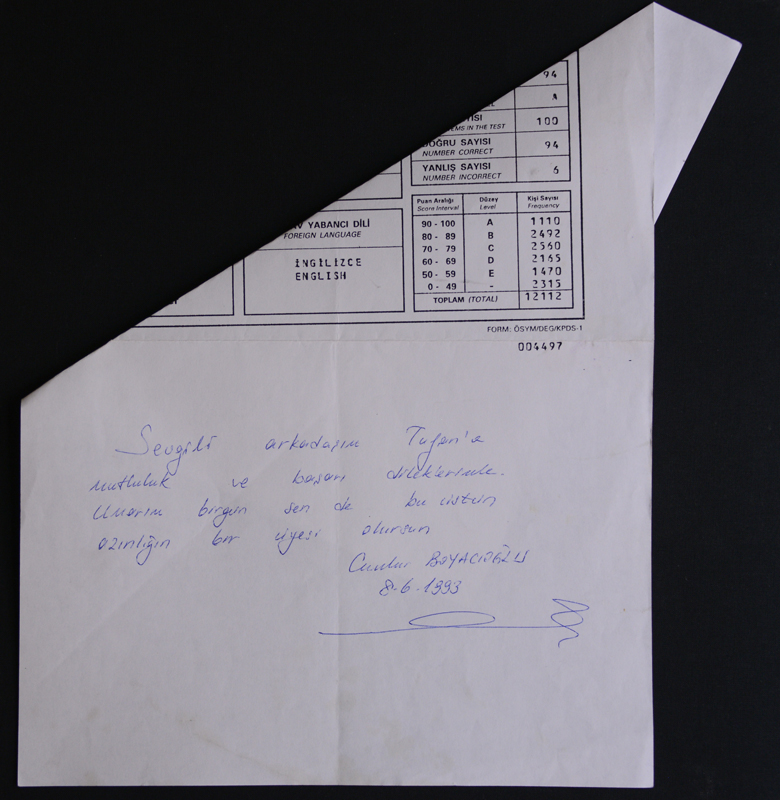 94
A
YISI 100
EMS IN THE TEST
DOĞRU SAYISI 94
NUMBER CORRECT
YANLIŞ SAYISI 6
NUMBER INCORRECT
Puan Aralığı Düzey Kişi Sayısı
Score Interval Level Frequency
90 - 100 A 1110
80 - 89 B 2492
70 - 79 C 2560
60 - 69 D 2165
50 - 59 E 1470
0 - 49 - 2315
TOPLAM (TOTAL) 12112
AV YABANCI DİLİ
FOREIGN LANGUAGE
İNGİLİZCE
ENGLISH
FORM: ÖSYM/DEG/KPDS-1
004497
Sevgili arkadaşım Tufan'a
mutluluk ve başarı dileklerimle.
Umarım birgün sen de bu üstün
azınlığın bir üyesi olursun
BOYACIOĞLU
8-6-1993